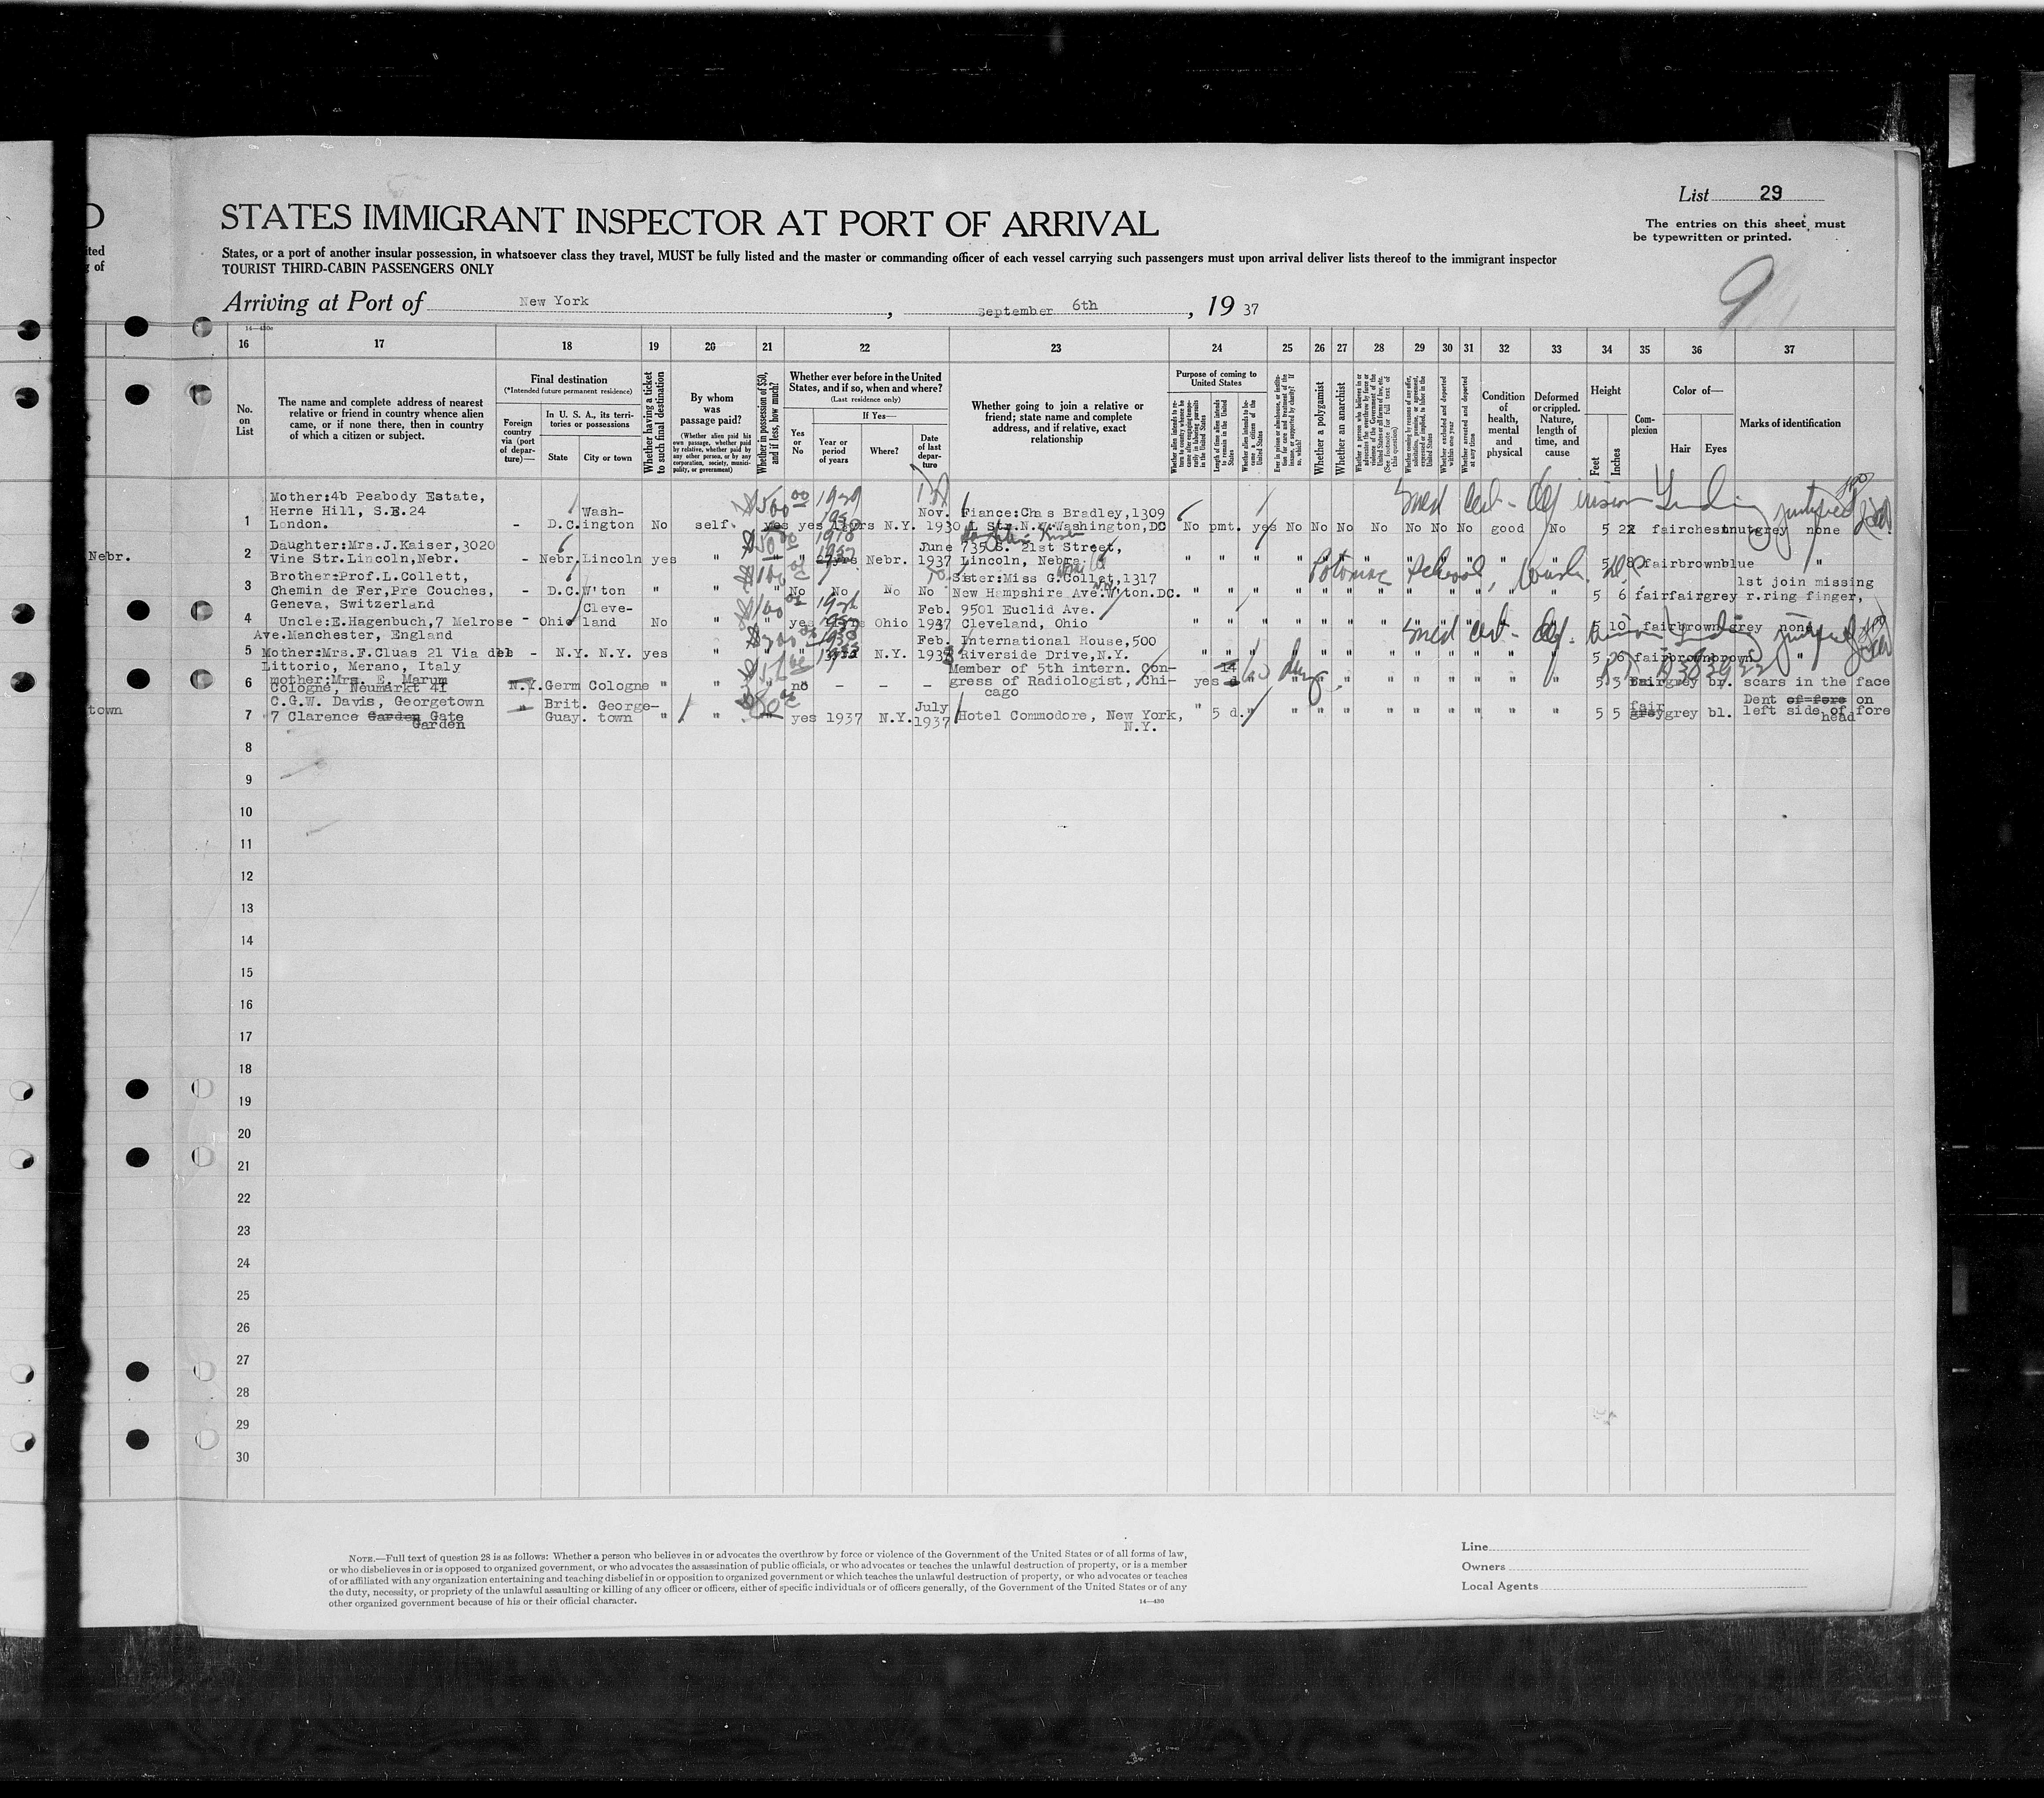 D
ited
g of
List 29
STATES IMMIGRANT INSPECTOR AT PORT OF ARRIVAL
The entries on this sheet must
be typewritten or printed.
States, or a port of another insular possession, in whatsoever class they travel, MUST be fully listed and the master or commanding officer of each vessel carrying such passengers must upon arrival deliver lists thereof to the immigrant inspector
TOURIST THIRD-CABIN PASSENGERS ONLY
Arriving at Port of New York, September 6th, 19 37
16 17 18 19 20 21 22 23 24 25 26 27 28 29 30 31 32 33 34 35 36 37
No. on List
The name and complete address of nearest
relative or friend in country whence alien
came, or if none there, then in country
of which a citizen or subject.
Final destination
(*Intended future permanent residence)
Foreign country via (port of departure)—
In U. S. A., its territories or possessions
State
City or town
Whether having a ticket to such final destination
By whom was passage paid?
(Whether alien paid his own passage, whether paid by relative, whether paid by any other person, or by any corporation, society, municipality, or government)
Whether in possession of $50, and if less, how much?
Whether ever before in the United
States, and if so, when and where?
(Last residence only)
Yes or No
If Yes—
Year or period of years
Where?
Date of last departure
Whether going to join a relative or
friend; state name and complete
address, and if relative, exact
relationship
Purpose of coming to United States
Whether alien intends to return to country whence he came after engaging temporarily in laboring pursuits in the United States
Length of time alien intends to remain in the United States
Whether alien intends to become a citizen of the United States
Ever in prison or almshouse, or institution for care and treatment of the insane, or supported by charity? If so, which?
Whether a polygamist
Whether an anarchist
Whether a person who believes in or advocates the overthrow by force or violence of the Government of the United States or all forms of law, etc. (See footnote for full text of this question)
Whether coming by reason of any offer, solicitation, promise, or agreement, expressed or implied, to labor in the United States
Whether excluded and deported within one year
Whether arrested and deported at any time
Condition of health, mental and physical
Deformed or crippled. Nature, length of time, and cause
Height
Feet
Inches
Complexion
Color of—
Hair
Eyes
Marks of identification
Mother:4b Peabody Estate,
Herne Hill, S.E.24
London.
1 - D.C. Wash-ington No self. yes yes N.Y. Nov. 1930 Fiance:Chas Bradley,1309
L Str.N.W.Washington,DC No pmt. yes No No No No No No No good No 5 2 fair chestnut grey none
Nebr.
Daughter:Mrs.J.Kaiser,3020
Vine Str.Lincoln,Nebr.
2 - Nebr. Lincoln yes " " " Nebr. June 1937 735 S. 21st Street,
Lincoln, Nebra. " " " " " " " " " " " " 5 8 fair brown blue "
Brother:Prof.L.Collett,
Chemin de Fer,Pre Couches,
Geneva, Switzerland
3 - D.C. W'ton " " " No No No No Sister:Miss G.Collet,1317
New Hampshire Ave.W'ton.DC. " " " 5 6 fair fair grey 1st join missing
r.ring finger,
Potomac School, Wash. D.C.
4 Uncle:E.Hagenbuch,7 Melrose
Ave.Manchester, England
- Ohio Cleve-land No " " yes Ohio Feb. 1937 9501 Euclid Ave.
Cleveland, Ohio " " " 5 10 fair brown grey none
5 Mother:Mrs.F.Cluas 21 Via del
Littorio, Merano, Italy
- N.Y. N.Y. yes " " " N.Y. Feb. International House,500
Riverside Drive,N.Y. " " " 5 6 fair brown brown "
6 mother:Mrs. E. Marum
Cologne, Neumarkt 41
N.Y. Germ Cologne " " no - - - Member of 5th intern. Con-
gress of Radiologist, Chi-
cago
yes 14 d 60 days 5 3 fair grey br. scars in the face
town
C.G.W. Davis, Georgetown
7 7 Clarence Garden Gate
Garden
" Brit. Guay. George-town " " " yes 1937 N.Y. July 1937 Hotel Commodore, New York,
N.Y.
" 5 d. " " " " " " " " " " 5 5 fair grey grey bl. Dent of fore on
left side of fore
head
8
9
10
11
12
13
14
15
16
17
18
19
20
21
22
23
24
25
26
27
28
29
30
NOTE.—Full text of question 28 is as follows: Whether a person who believes in or advocates the overthrow by force or violence of the Government of the United States or of all forms of law,
or who disbelieves in or is opposed to organized government, or who advocates the assassination of public officials, or who advocates or teaches the unlawful destruction of property, or is a member
of or affiliated with any organization entertaining and teaching disbelief in or opposition to organized government or which teaches the unlawful destruction of property, or who advocates or teaches
the duty, necessity, or propriety of the unlawful assaulting or killing of any officer or officers, either of specific individuals or of officers generally, of the Government of the United States or of any
other organized government because of his or their official character.
14—430
Line
Owners
Local Agents